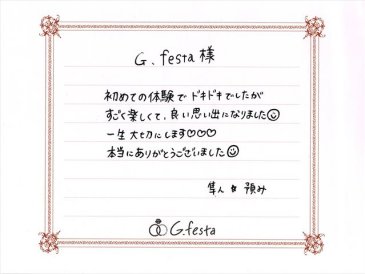 G.festa 様
初めての体験でドキドキでしたが
すごく楽しくて、良い思い出になりました☺
一生大切にします♡♡♡
本当にありがとうございました☺
隼人
G.festa